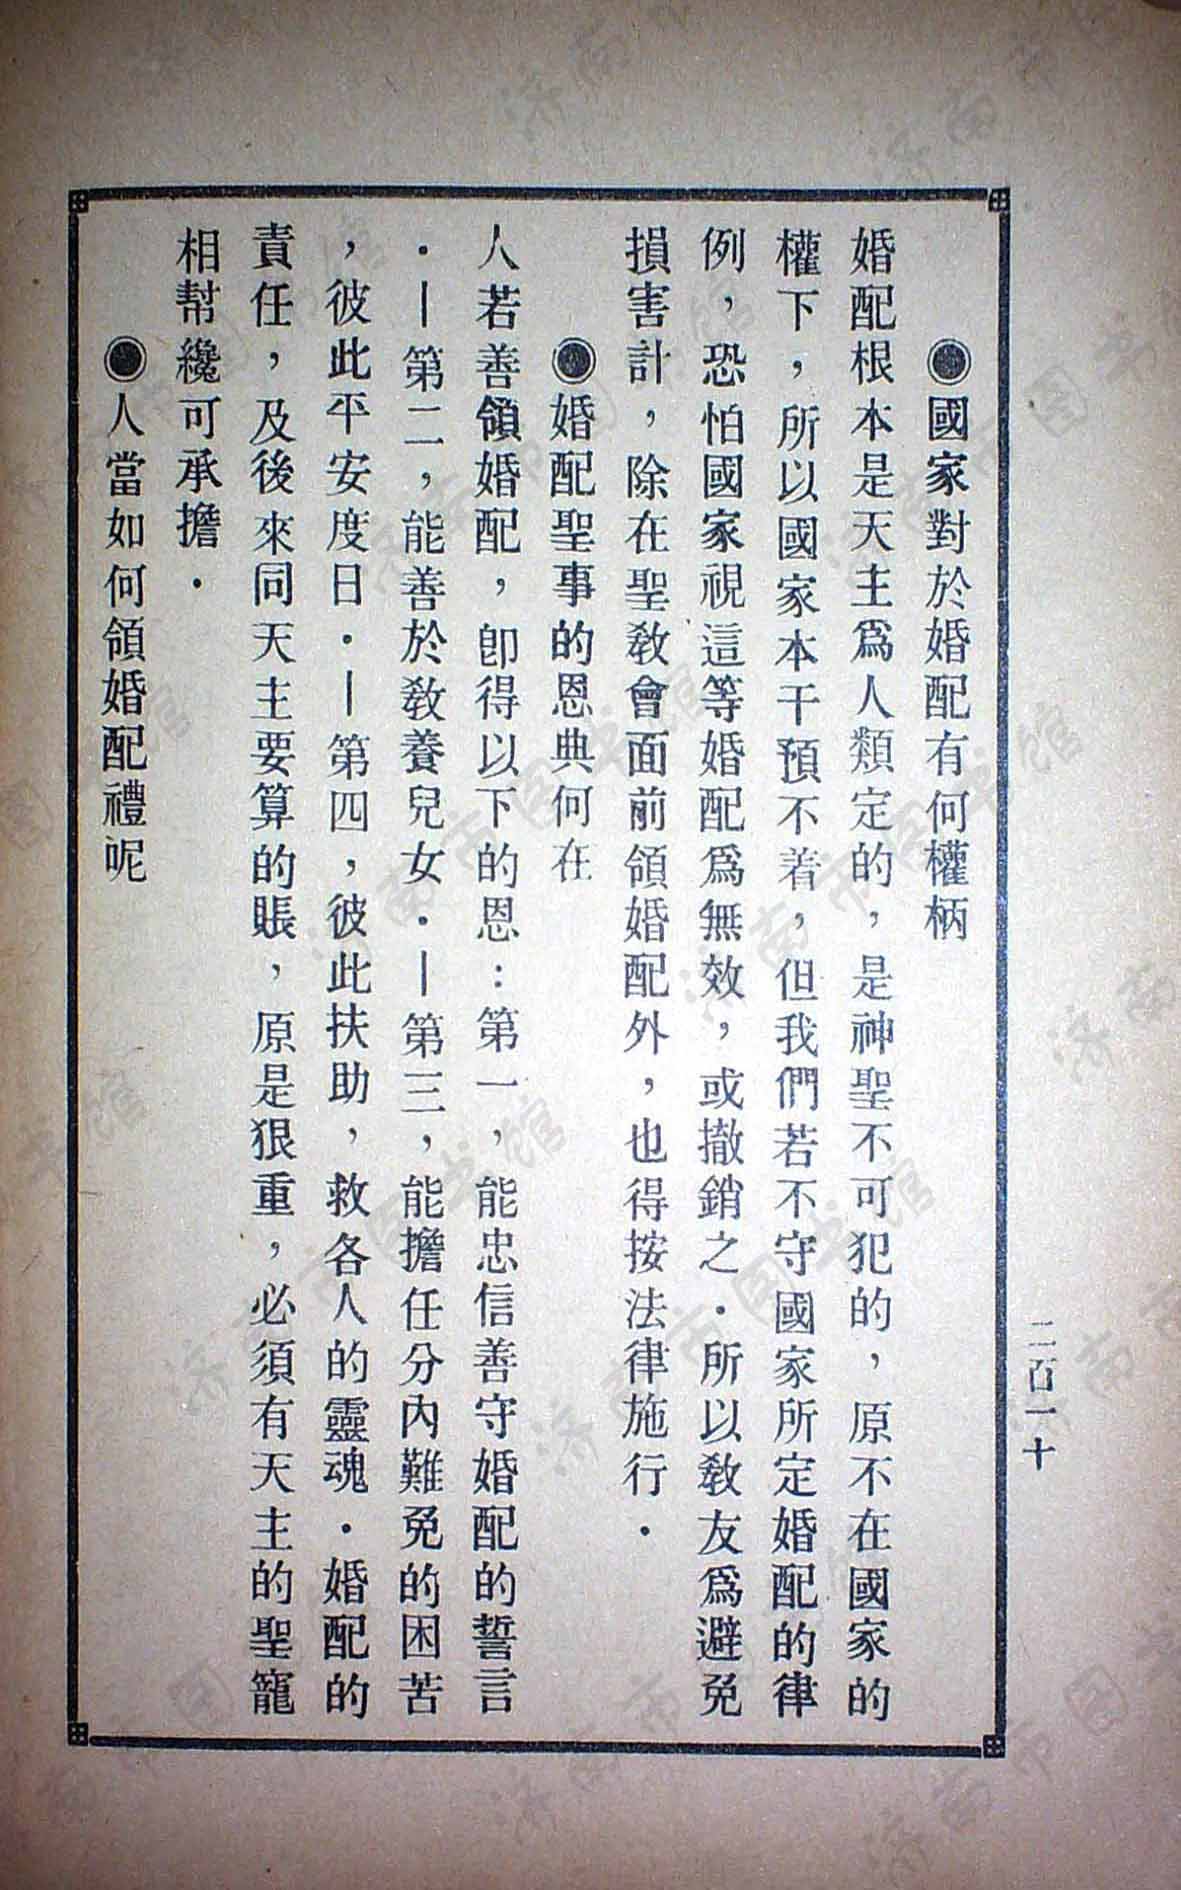 ◉國家對於婚配有何權柄
婚配根本是天主爲人類定的，是神聖不可犯的，原不在國家的
權下，所以國家本干預不着，但我們若不守國家所定婚配的律
例，恐怕國家視這等婚配爲無效，或撤銷之．所以敎友爲避免
損害計，除在聖敎會面前領婚配外，也得按法律施行．
◉婚配聖事的恩典何在
人若善領婚配，卽得以下的恩：第一，能忠信善守婚配的誓言
．—第二，能善於敎養兒女．—第三，能擔任分內難免的困苦
，彼此平安度日．—第四，彼此扶助，救各人的靈魂．婚配的
責任，及後來同天主要算的賬，原是狠重，必須有天主的聖寵
相幫纔可承擔．
◉人當如何領婚配禮呢
二百一十
济南市图书馆